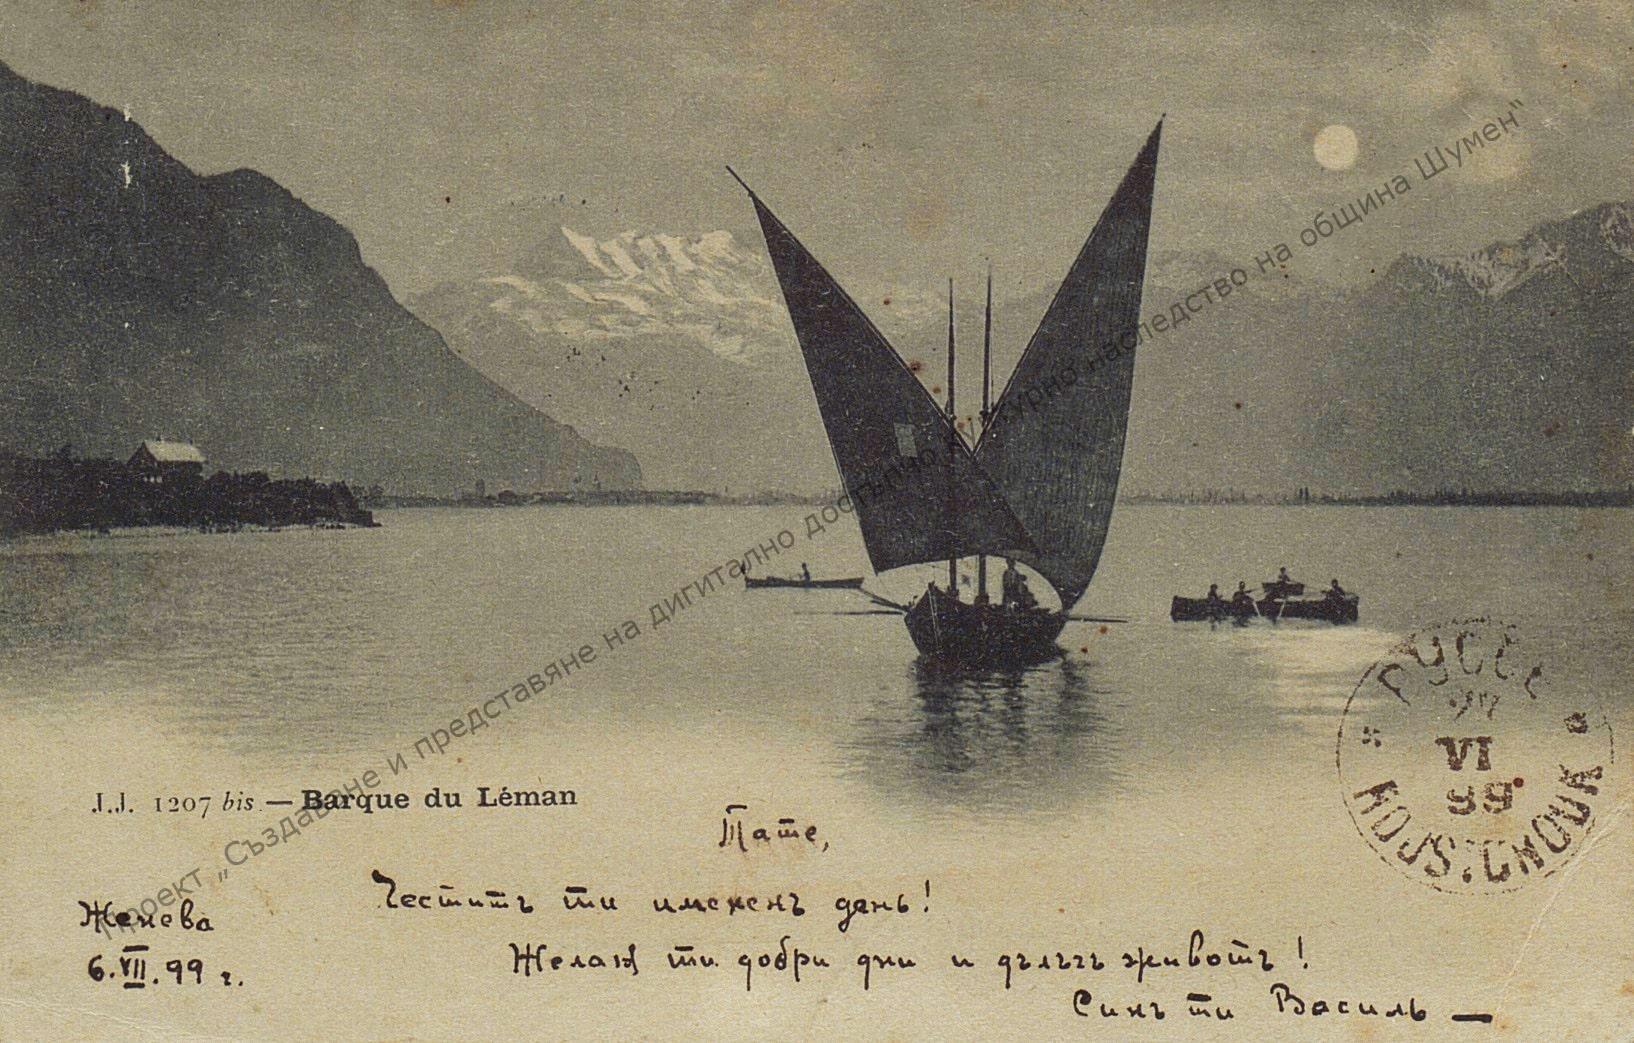 Проект „Създаване и представяне на дигитално достъпно културно наследство на община Шумен"
J.J. 1207 bis. — Barque du Léman
РУССЕ
27
VI
99
ROUSTCHOUK
Тате,
Честитъ ти имененъ день!
Женева
6.VII.99 г.
Желаѭ ти добри дни и дълъгъ животъ!
Синъ ти Василь —